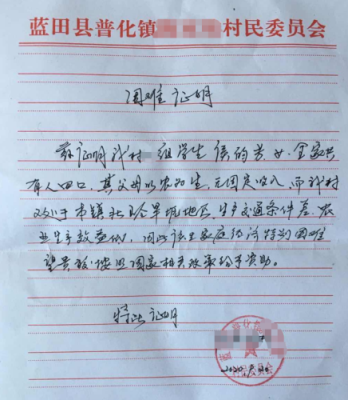 蓝田县普化镇 村民委员会
困难证明
兹证明我村 组学生 女,全家共
有人四口,其父母以农为生,无固定收入,而我村
又处于 地区,生产交通条件差,农
业生产效益低,因此该生家庭经济特别困难
望贵校按照国家相关政策给予资助。
特此证明